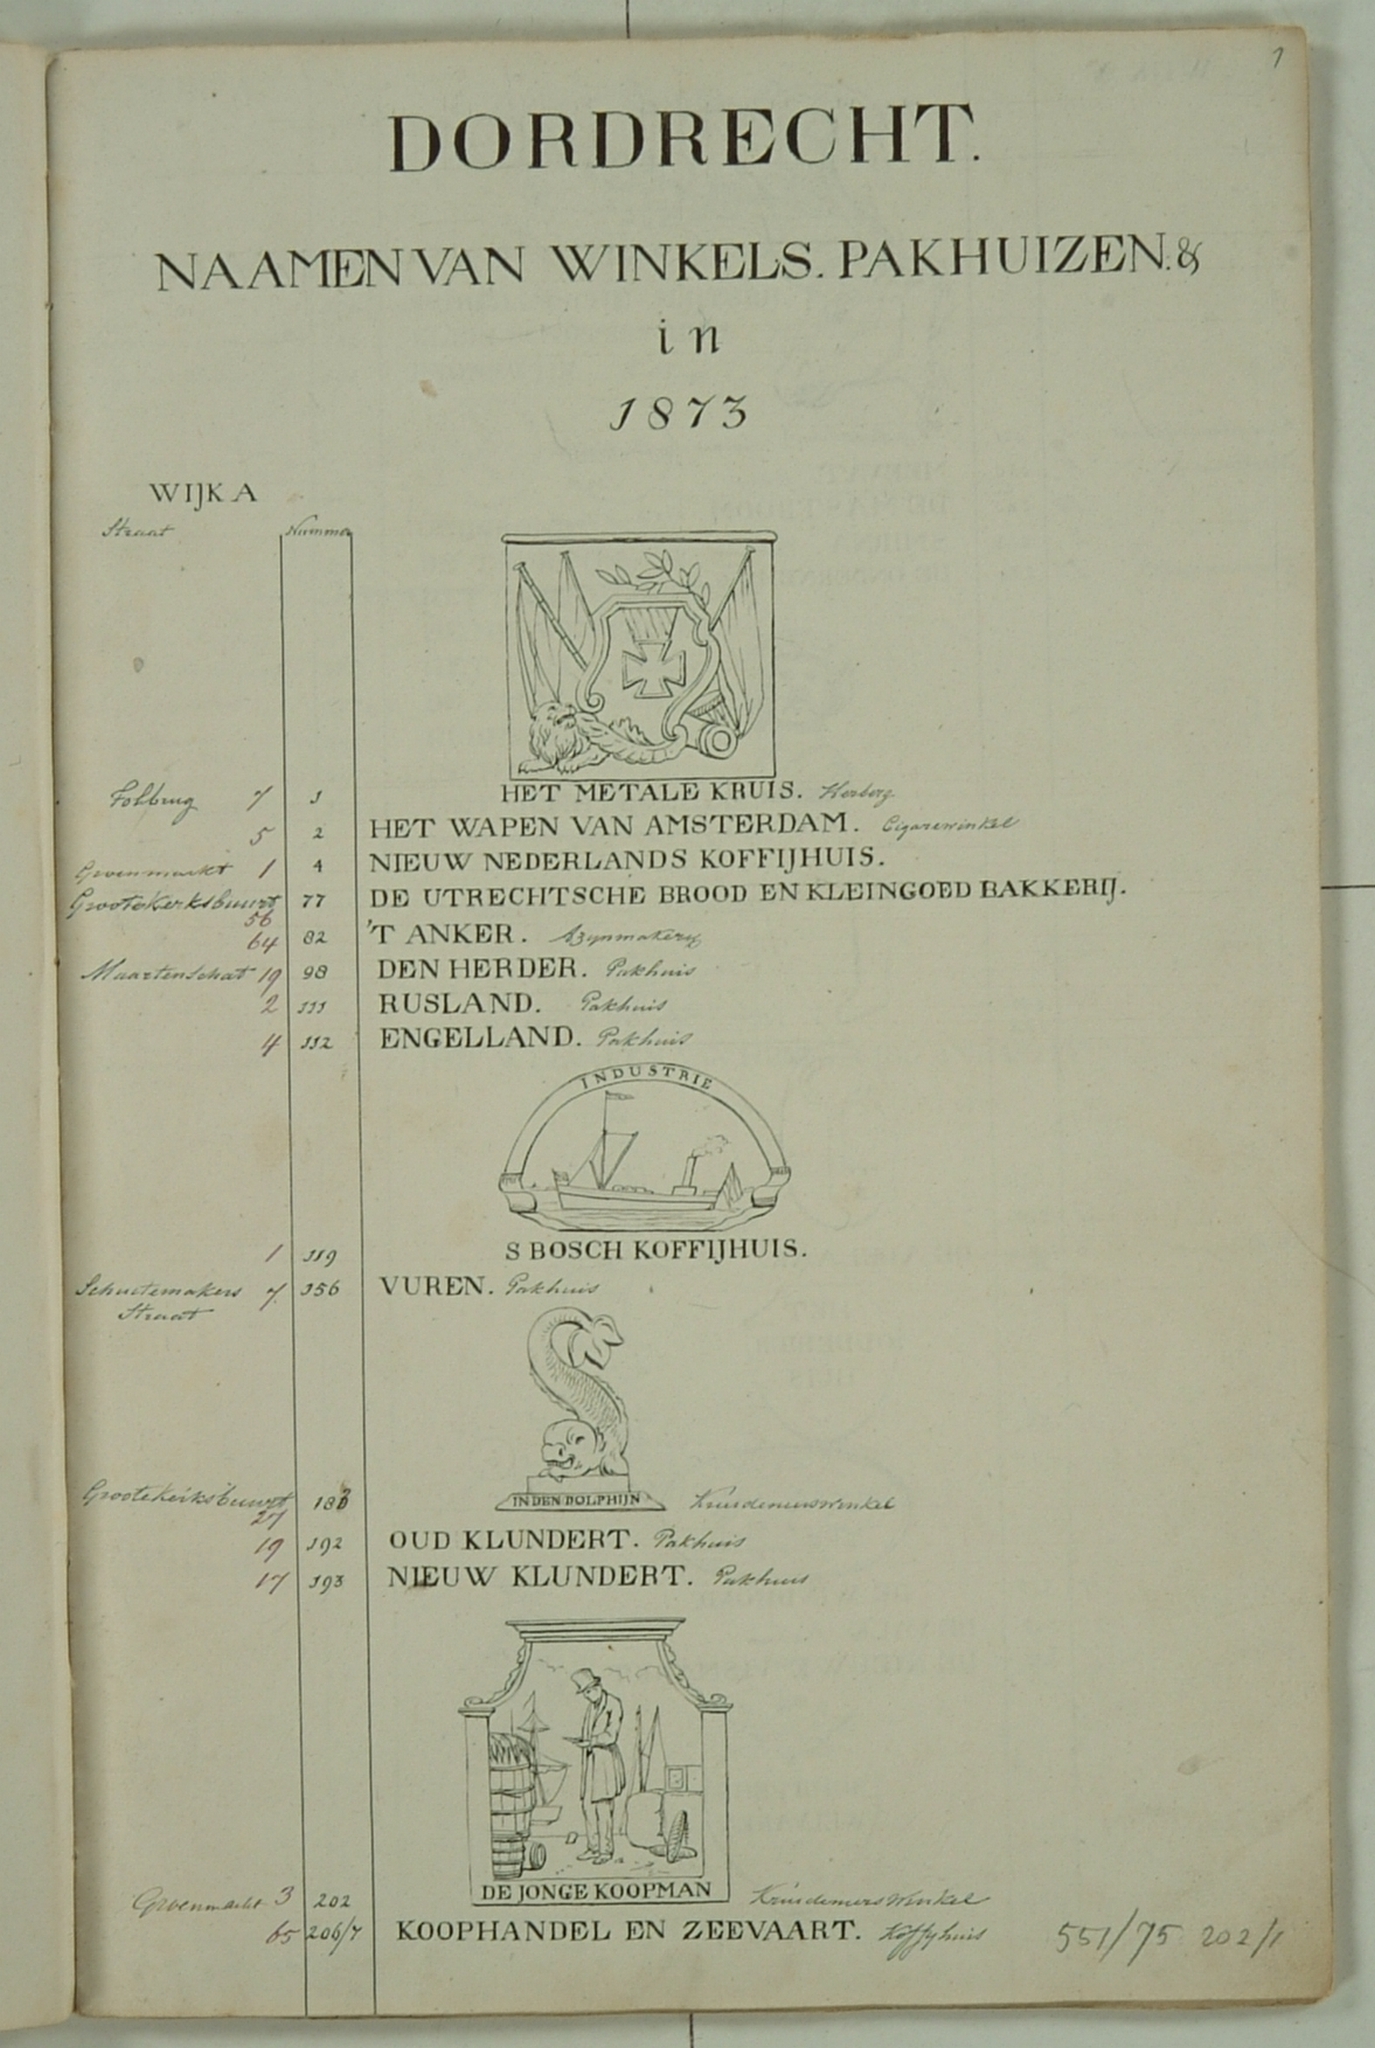 1
DORDRECHT.
NAAMEN VAN WINKELS. PAKHUIZEN. &
in
1873
WIJK A
Straat Nummer
Tolbrug 7 1 HET METALE KRUIS. Herberg
5 2 HET WAPEN VAN AMSTERDAM. Cigarewinkel
Groenmarkt 1 4 NIEUW NEDERLANDS KOFFIJHUIS.
GrooteKerksbuurt 56 77 DE UTRECHTSCHE BROOD EN KLEINGOED BAKKERIJ.
64 82 'T ANKER. Azynmakery
Maartensehat 19 98 DEN HERDER. Pakhuis
2 111 RUSLAND. Pakhuis
4 112 ENGELLAND. Pakhuis
INDUSTRIE
1 119 S BOSCH KOFFIJHUIS.
Schuitemakers 7. 156 VUREN. Pakhuis
Straat
IN DEN DOLPHIJN
GrooteKerksbuurt 27 183 Kruideniers Winkel
19 192 OUD KLUNDERT. Pakhuis
17 193 NIEUW KLUNDERT. Pakhuis
DE JONGE KOOPMAN
Groenmarkt 3 202 Kruideniers Winkel
65 206/7 KOOPHANDEL EN ZEEVAART. Koffyhuis
551/75 202/1